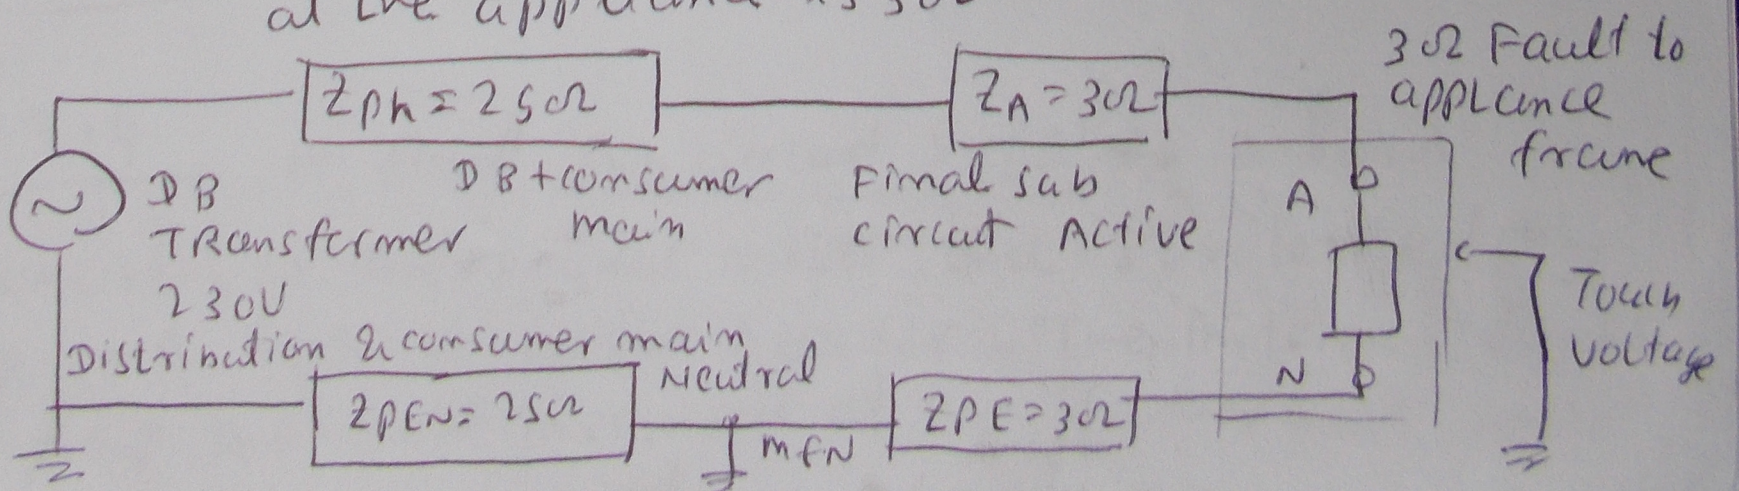 at the appliance is 3Ω
ZPh = 25Ω
ZA = 3Ω
3Ω Fault to
appLance
frame
DB
TRansformer
230V
DB + consumer
main
Final sub
circuit Active
A
Touch
voltage
Distribution & consumer main
Neutral
ZPEN = 25Ω
MEN
ZPE = 3Ω
N